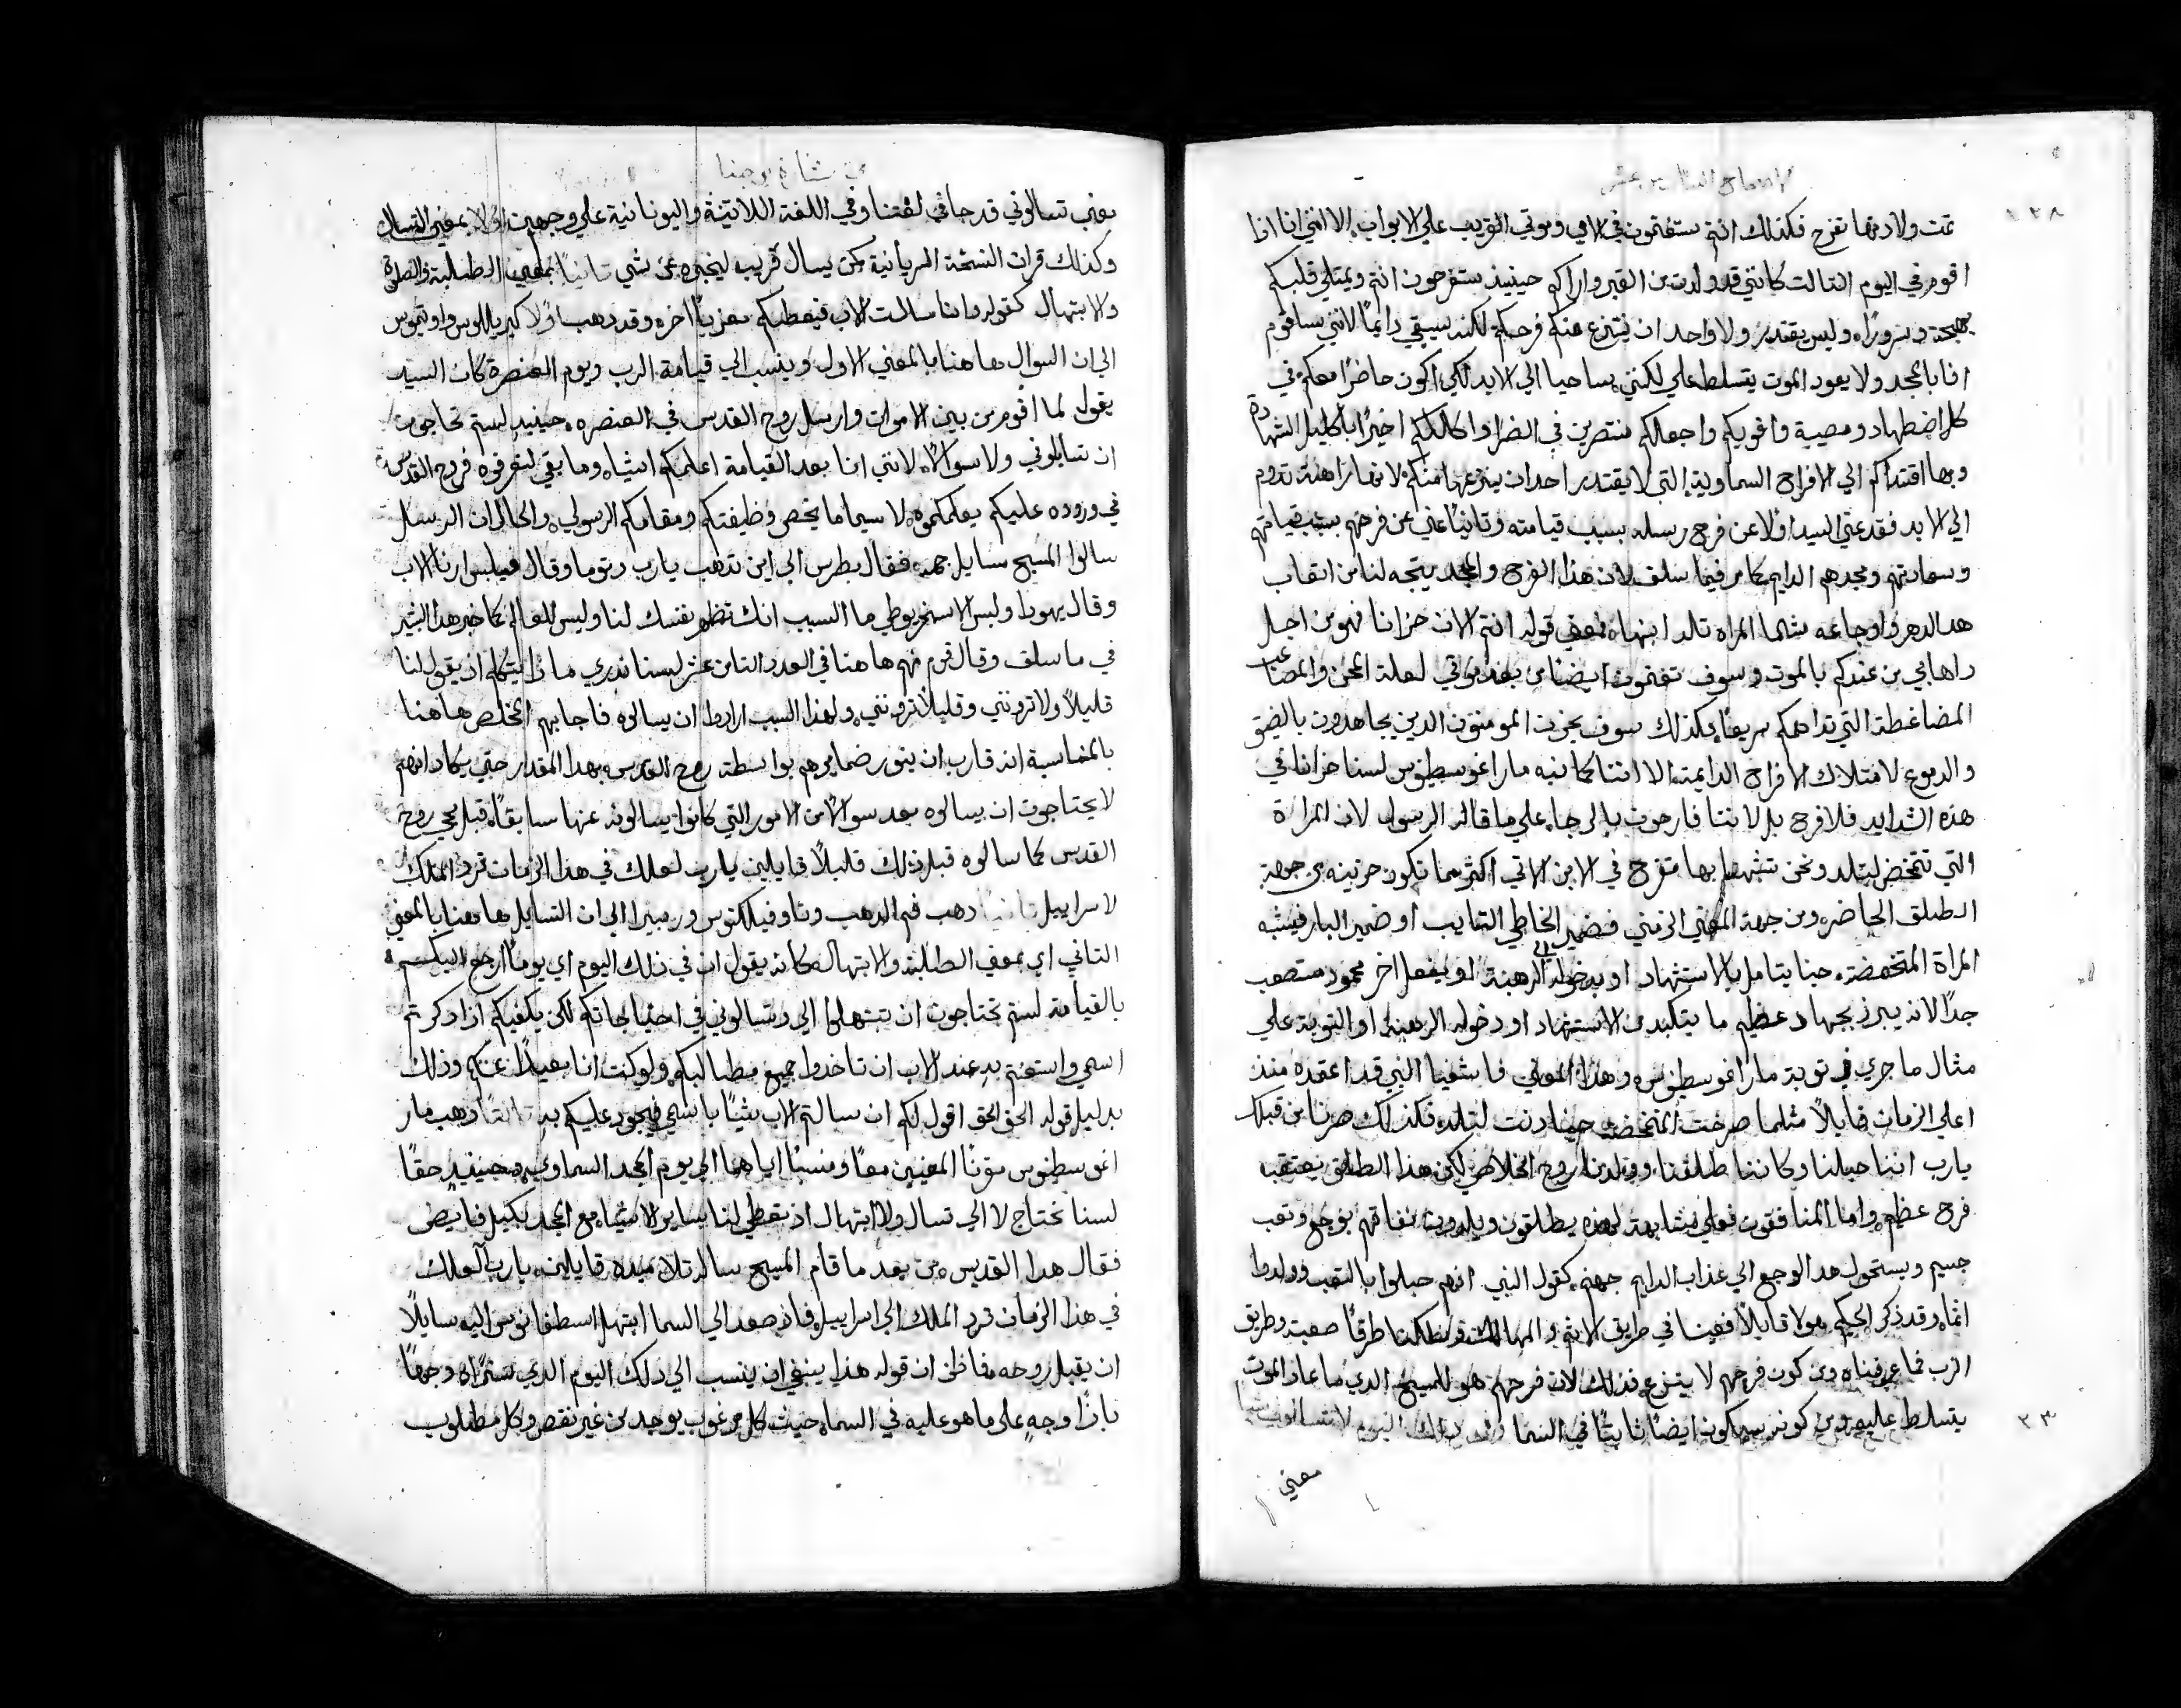 الاصحاح السادس عشر
٢٣٨
تمت ولادتها تفرح فكذلك انتم ستغتمون في الامي وموتي القريب علي الابواب الا انني انا اذا
اقوم في اليوم الثالث كانني قد ولدت من القبر واراكم حينيذ ستفرحون انتم ويمتلي قلبكم
بهجة وسرورًا، وليس يقتدر ولا واحد ان ينتزع عنكم فرحكم لكنه سيبقي دايمًا لانني ساقوم
انا بالمجد ولا يعود الموت يتسلط علي لكنني ساحيا الي الابد لكي اكون حاضرًا معكم في
كل اضطهاد ومصيبة واقويكم واجعلكم منتصرين في الضرا واكللكم اخيرًا باكليل الشهادة
وبها اقتداكم الي الافراح السماوية التي لا يقتدر احد ان ينزعها منكم لانها راهنة تدوم
الي الابد فقد عني السيد اولًا عن فرح رسله بسبب قيامته وثانيًا عني عن فرحهم بسبب قيامتهم
وسعادتهم ومجدهم الدايم كما مر فيما سلف لان هذا الفرح والمجد يتجه لنا من اتعاب
هدا الدهر واوجاعه مثلما المراه تلد ابنها، فمعني قوله انتم الان حزانا فهو من اجل
ذهابي من عندكم بالموت وسوف تغتمون ايضًا من بعد موتي لعلة المحن والمصائب
المضاغطة التي تداهمكم سريعًا، فكذلك سوف يحزن المومنون الدين يجاهدون بالضيق
والدموع لامتلاك الافراح الدايمة، الا اننا كما نبه مار اغوسطينوس لسنا حزانا في
هذه الشدايد فلا فرح بل لاننا فارحون بالرجا علي ما قاله الرسول لان المراة
التي تتمخض لتلد ونحن تشبهنا بها متفرح في الابن الاتي اكثر مما تكون حزينه من جهة
الطلق الحاضره ومن جهة المعني الزمني فضمير الخاطي التايب او ضمير البار فيشبه
المراة المتمخضة، حينا يتامل بالاستشهاد او بدخوله الي الرهبنة او بفعل اخر محمود مستصعب
جدًا لانه يبرز بجهاد عظيم ما يتكبد من الاستشهاد او دخوله الرهبنة او التوبة علي
مثال ما جري في توبة مار اغوسطينوس، وهذا المعني فاشعيا النبي قد اعتمده منذ
اعلي الزمان قايلًا مثلما صرخت المتمخضة حينا دنت لتلد، فكذلك صرنا من قبلك
يارب اننا حبلنا وكاننا طلقنا وولدنا روح الخلاص لكن هذا الطلق يعتقبه
فرح عظيم، واما المنافقون فعلي مشابهة لهذه يطلقون ويلدون نفاقهم بوجع وتعب
جسيم ويستحول هدا الوجع الي عذاب الدايم جهنم، كقول النبي انهم حبلوا بالتعب وولدوا
اثمًا، وقد ذكر الحكيم هولا قايلًا فعينا في طريق الاثم والهلاك وسلكنا طرقًا صعبة وطريق
الرب فما عرفناه ومن كون فرحهم لا ينتزع فذلك لان فرحهم هو للمسيح الدي ما عاد الموت
يتسلط عليه ومن كونه سيكون ايضًا ثابتًا في السما وفي ذلك اليوم لا تسالوني شيا
٢٣
معني
من بشارة يوحنا
معني تسالوني قد جا في لغتنا وفي اللغة اللاتينية واليونانية علي وجهين اولًا بمعني التسال
وكذلك قرات النسخة السريانية كمن يسال قريب ليخبره عن شي ثانيًا بمعني الطلبة والصلاة
والابتهال كقوله فانا سالت الاب فيعطيكم معزيًا اخر، وقد دهب اولًا كيريللوس واوتيموس
الي ان السوال هاهنا بالمعني الاول وينسب الي قيامة الرب ويوم العنصرة كان السيد
يقول لما اقوم من بين الاموات وارسل روح القدس في العنصره، حينيذ لستم تحتاجون
ان تسايلوني ولا سوالًا، لانني انا بعد القيامة اعلمكم اشيا، وما بقي لتعرفوه فروح القدس
في وروده عليكم يعلمكموه، لا سيما ما يخص وظيفتكم ومقامكم الرسولي، والحال ان الرسل
سالوا المسيح مسايل جمه، فقال بطرس الي اين تدهب يارب وتوما وقال فيلبس ارنا الاب
وقال يهودا وليس الاسخريوطي ما السبب انك تظهر نفسك لنا وليس للعالم كما خبر هدا البشير
في ما سلف وقال قوم منهم هاهنا في العدد الثامن عشر لسنا ندري ما ذا يتكلم اذ يقول لنا
قليلًا ولا ترونني وقليلًا ترونني، ولهذا السبب ارادوا ان يسالوه فاجابهم المخلص هاهنا
بالمناسبة انه قارب ان ينور ضمايرهم بواسطة روح القدس، بهدا المقدار حتي يكاد انهم
لا يحتاجون ان يسالوه بعد سوالًا من الامور التي كانوا يسالونه عنها سابقًا، قبل مجي روح
القدس كما سالوه قبل ذلك قليلًا قايلين يارب لعلك في هذا الزمان ترد الملك
لاسراييل ثانيًا دهب فم الدهب وثاوفيلكتوس وريبيرا الي ان التسايل هاهنا بالمعني
الثاني اي بمعني الطلبة والابتهال كانه يقول ان في ذلك اليوم اي يومًا ارجع اليكم
بالقيامة لستم تحتاجون ان تبتهلوا الي وتسالوني في احتياجاتكم لكن يكفيكم اذا ذكرتم
اسمي واستغنتم به عند الاب ان تاخدوا جميع مطالبكم، ولو كنت انا بعيدًا عنكم وذلك
بدليل قوله الحق الحق اقول لكم ان سالتم الاب شيًا باسمي فيجود عليكم به ثالثًا دهب مار
اغوسطينوس موتًا المعنيين معًا ومنسبًا اياهما الي يوم المجد السماوي، فحينيذ حقًا
لسنا نحتاج لا الي تسال ولا ابتهال اذ تعطي لنا ساير الاشيا مع المجد بكيل فايض
فقال هدا القديس، من بعد ما قام المسيح ساله تلاميده قايلين، يارب العلك
في هذا الزمان ترد الملك الي اسراييل، فاذ صعد الي السما ابتهل اسطفانوس اليه سايلًا
ان يقبل روحه، فاظن ان قوله هذا ينبغي ان ينسب الي ذلك اليوم الدي سنراه وجهًا
بازا وجهٍ علي ما هو عليه في السما، حيث كل مرغوب يوجد من غير نقص وكل مطلوب